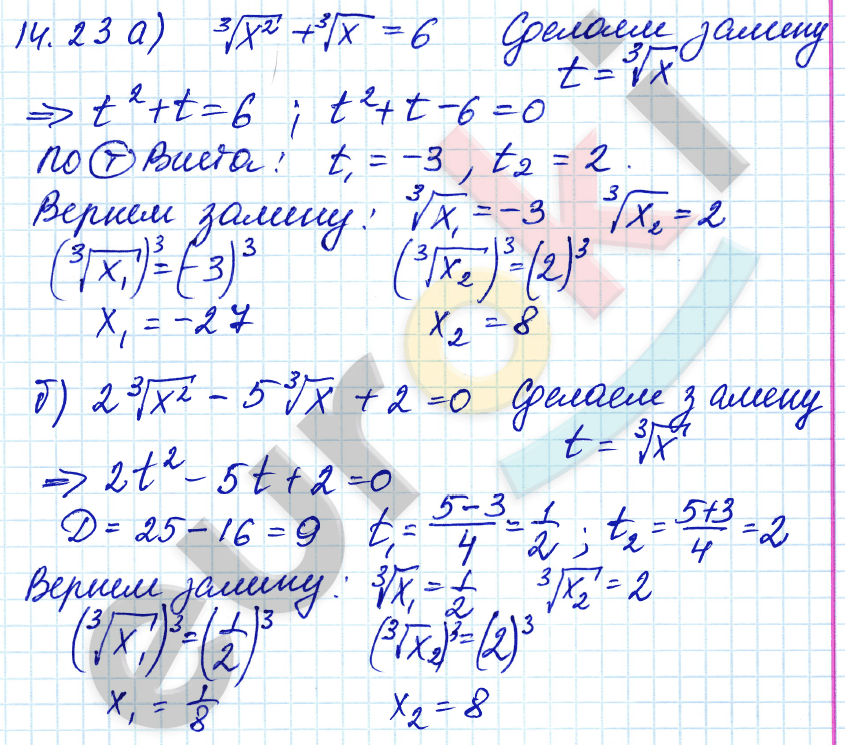 14.23 а) ∛x² + ∛x = 6 Сделаем замену
t = ∛x
=> t² + t = 6 ; t² + t - 6 = 0
по Ⓣ Виета: t₁ = -3, t₂ = 2.
Вернем замену: ∛x₁ = -3 ∛x₂ = 2
(∛x₁)³ = (-3)³ (∛x₂)³ = (2)³
x₁ = -27 x₂ = 8
б) 2∛x² - 5∛x + 2 = 0 Сделаем замену
t = ∛x
=> 2t² - 5t + 2 = 0
D = 25 - 16 = 9 t₁ = (5-3)/4 = 1/2 ; t₂ = (5+3)/4 = 2
Вернем замену: ∛x₁ = 1/2 ∛x₂ = 2
(∛x₁)³ = (1/2)³ (∛x₂)³ = (2)³
x₁ = 1/8 x₂ = 8
euroki